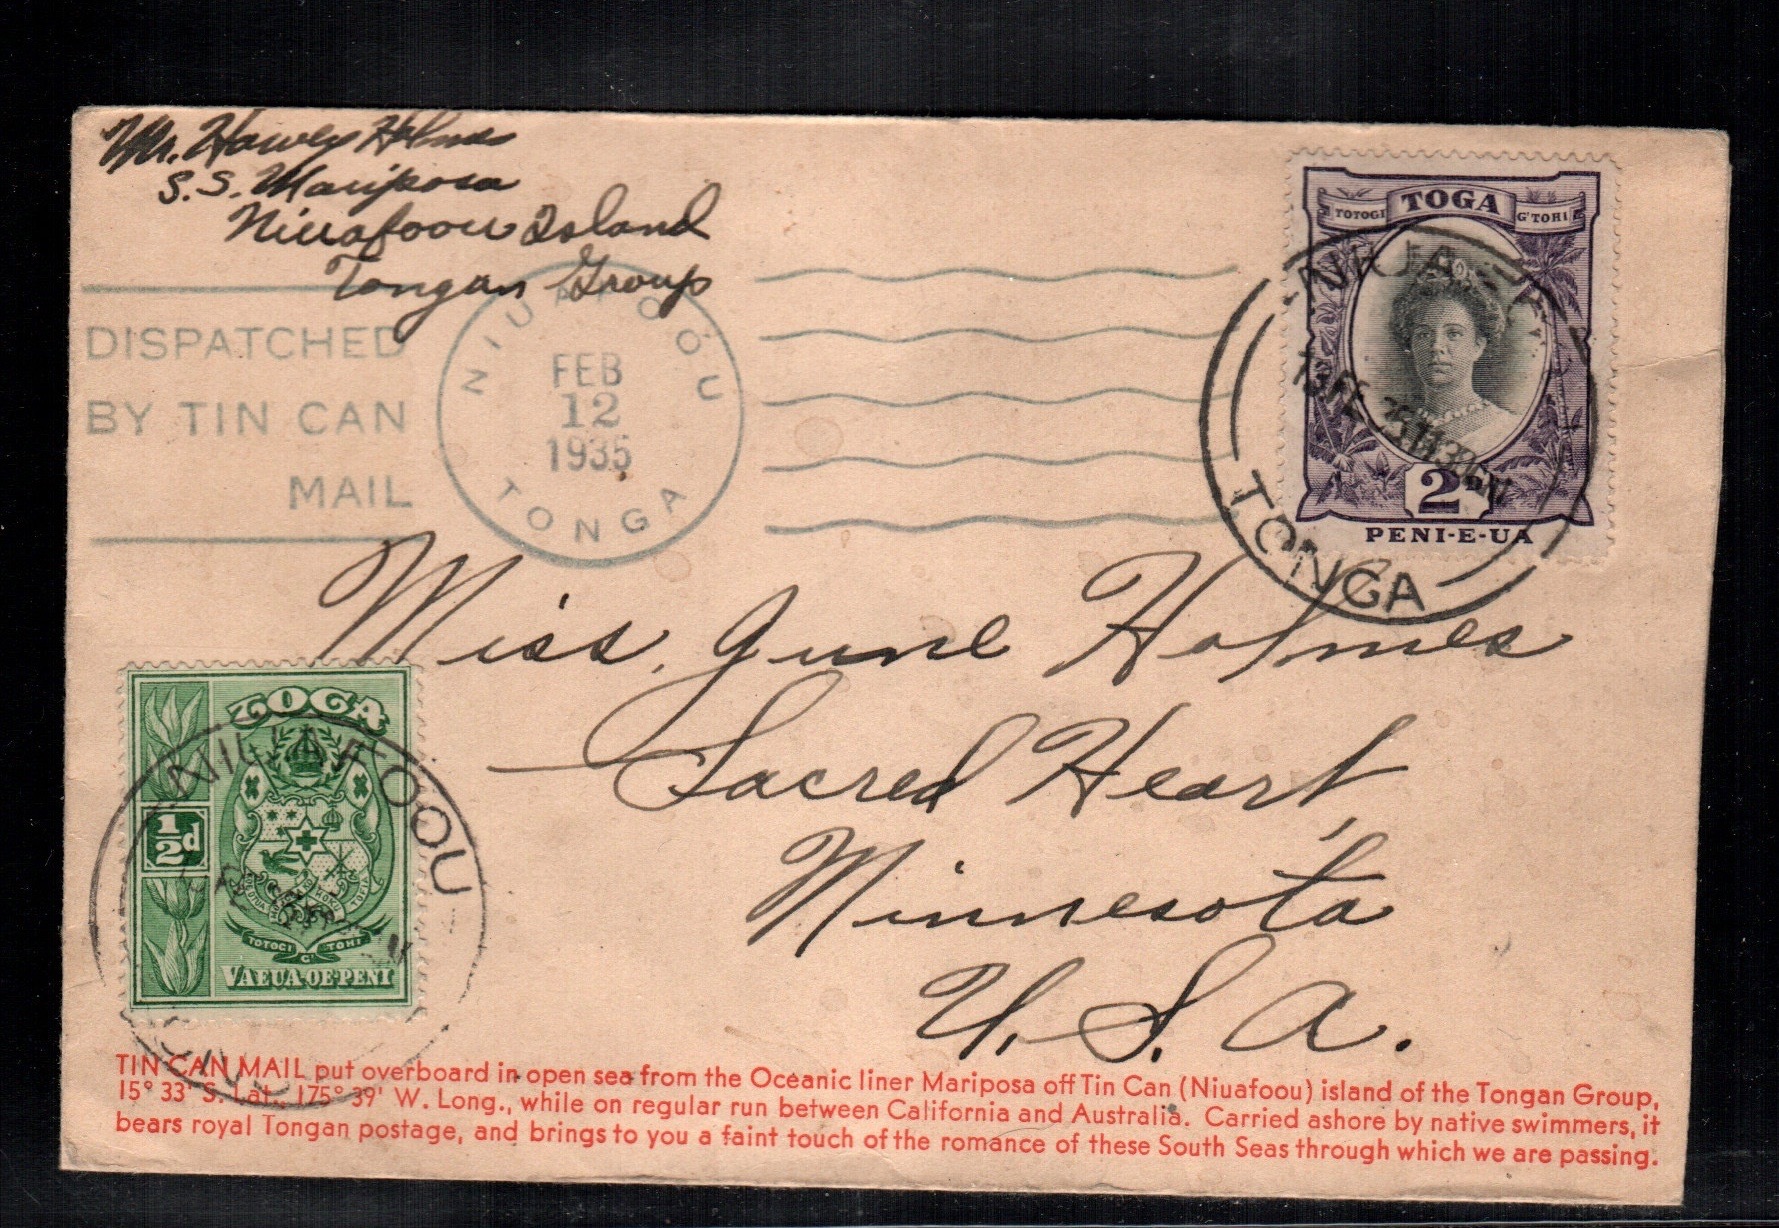 Mr. Holmes
S.S. Mariposa
Niuafoou Island
Tongan Group
DISPATCHED
BY TIN CAN
MAIL
NIUAFOOU
FEB
12
1935
TONGA
TOGA
TOTOGI G'TOHI
2
PENI-E-UA
NIUAFOOU
TONGA
Miss. June Holmes
Sacred Heart,
Minnesota
U.S.A.
TOGA
½d
TOTOGI G' TOHI
VAEUA-OE-PENI
NIUAFOOU
TIN CAN MAIL put overboard in open sea from the Oceanic liner Mariposa off Tin Can (Niuafoou) island of the Tongan Group,
15° 33' S. Lat., 175° 39' W. Long., while on regular run between California and Australia. Carried ashore by native swimmers, it
bears royal Tongan postage, and brings to you a faint touch of the romance of these South Seas through which we are passing.